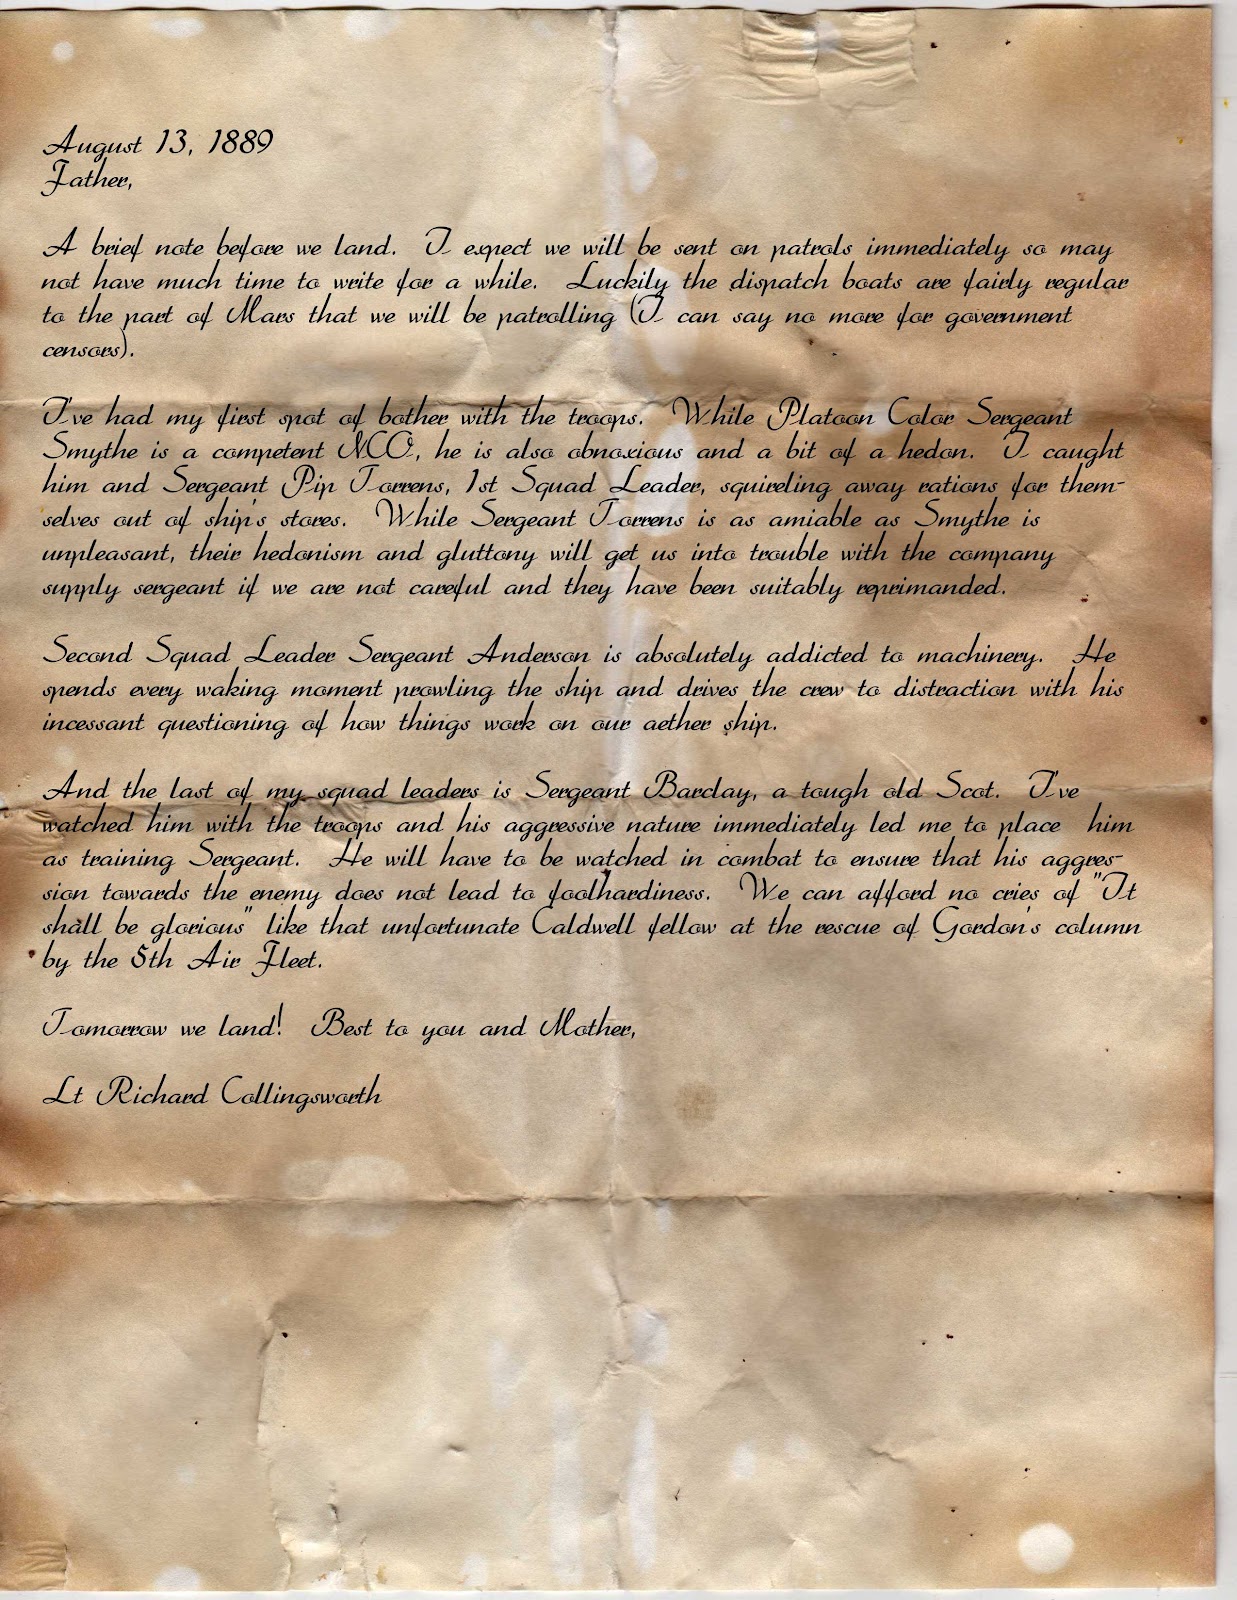 August 13, 1889
Father,
A brief note before we land. I expect we will be sent on patrols immediately so may
not have much time to write for a while. Luckily the dispatch boats are fairly regular
to the part of Mars that we will be patrolling (I can say no more for government
censors).
I've had my first spot of bother with the troops. While Platoon Color Sergeant
Smythe is a competent NCO, he is also obnoxious and a bit of a hedon. I caught
him and Sergeant Pip Torrens, 1st Squad Leader, squireling away rations for them-
selves out of ship's stores. While Sergeant Torrens is as amiable as Smythe is
unpleasant, their hedonism and gluttony will get us into trouble with the company
supply sergeant if we are not careful and they have been suitably reprimanded.
Second Squad Leader Sergeant Anderson is absolutely addicted to machinery. He
spends every waking moment prowling the ship and drives the crew to distraction with his
incessant questioning of how things work on our aether ship.
And the last of my squad leaders is Sergeant Barclay, a tough old Scot. I've
watched him with the troops and his aggressive nature immediately led me to place him
as training Sergeant. He will have to be watched in combat to ensure that his aggres-
sion towards the enemy does not lead to foolhardiness. We can afford no cries of "It
shall be glorious" like that unfortunate Caldwell fellow at the rescue of Gordon's column
by the 5th Air Fleet.
Tomorrow we land! Best to you and Mother,
Lt Richard Collingsworth